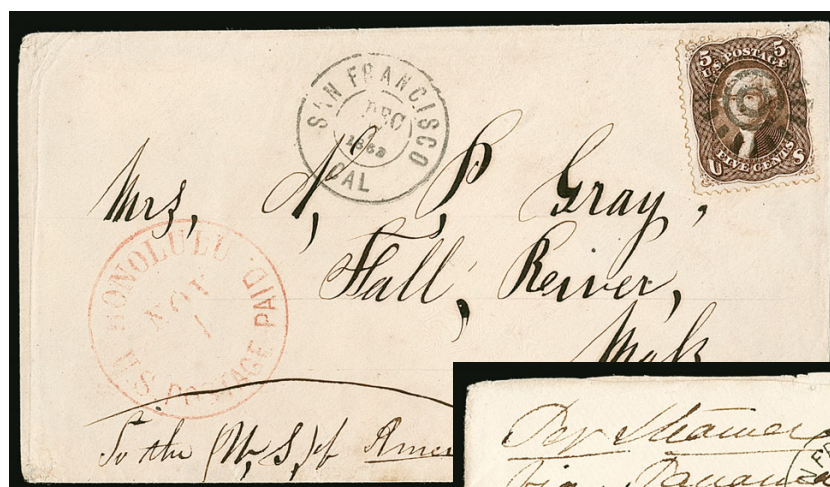 SAN FRANCISCO
DEC
7
1863
CAL
5 5
U.S. POSTAGE
FIVE CENTS
U S
Mrs, N, P, Gray,
Fall, Reiver,
HONOLULU U.S. POSTAGE PAID
NOV
1
To the (U, S,) of Amer
Per Steamer
via Panama